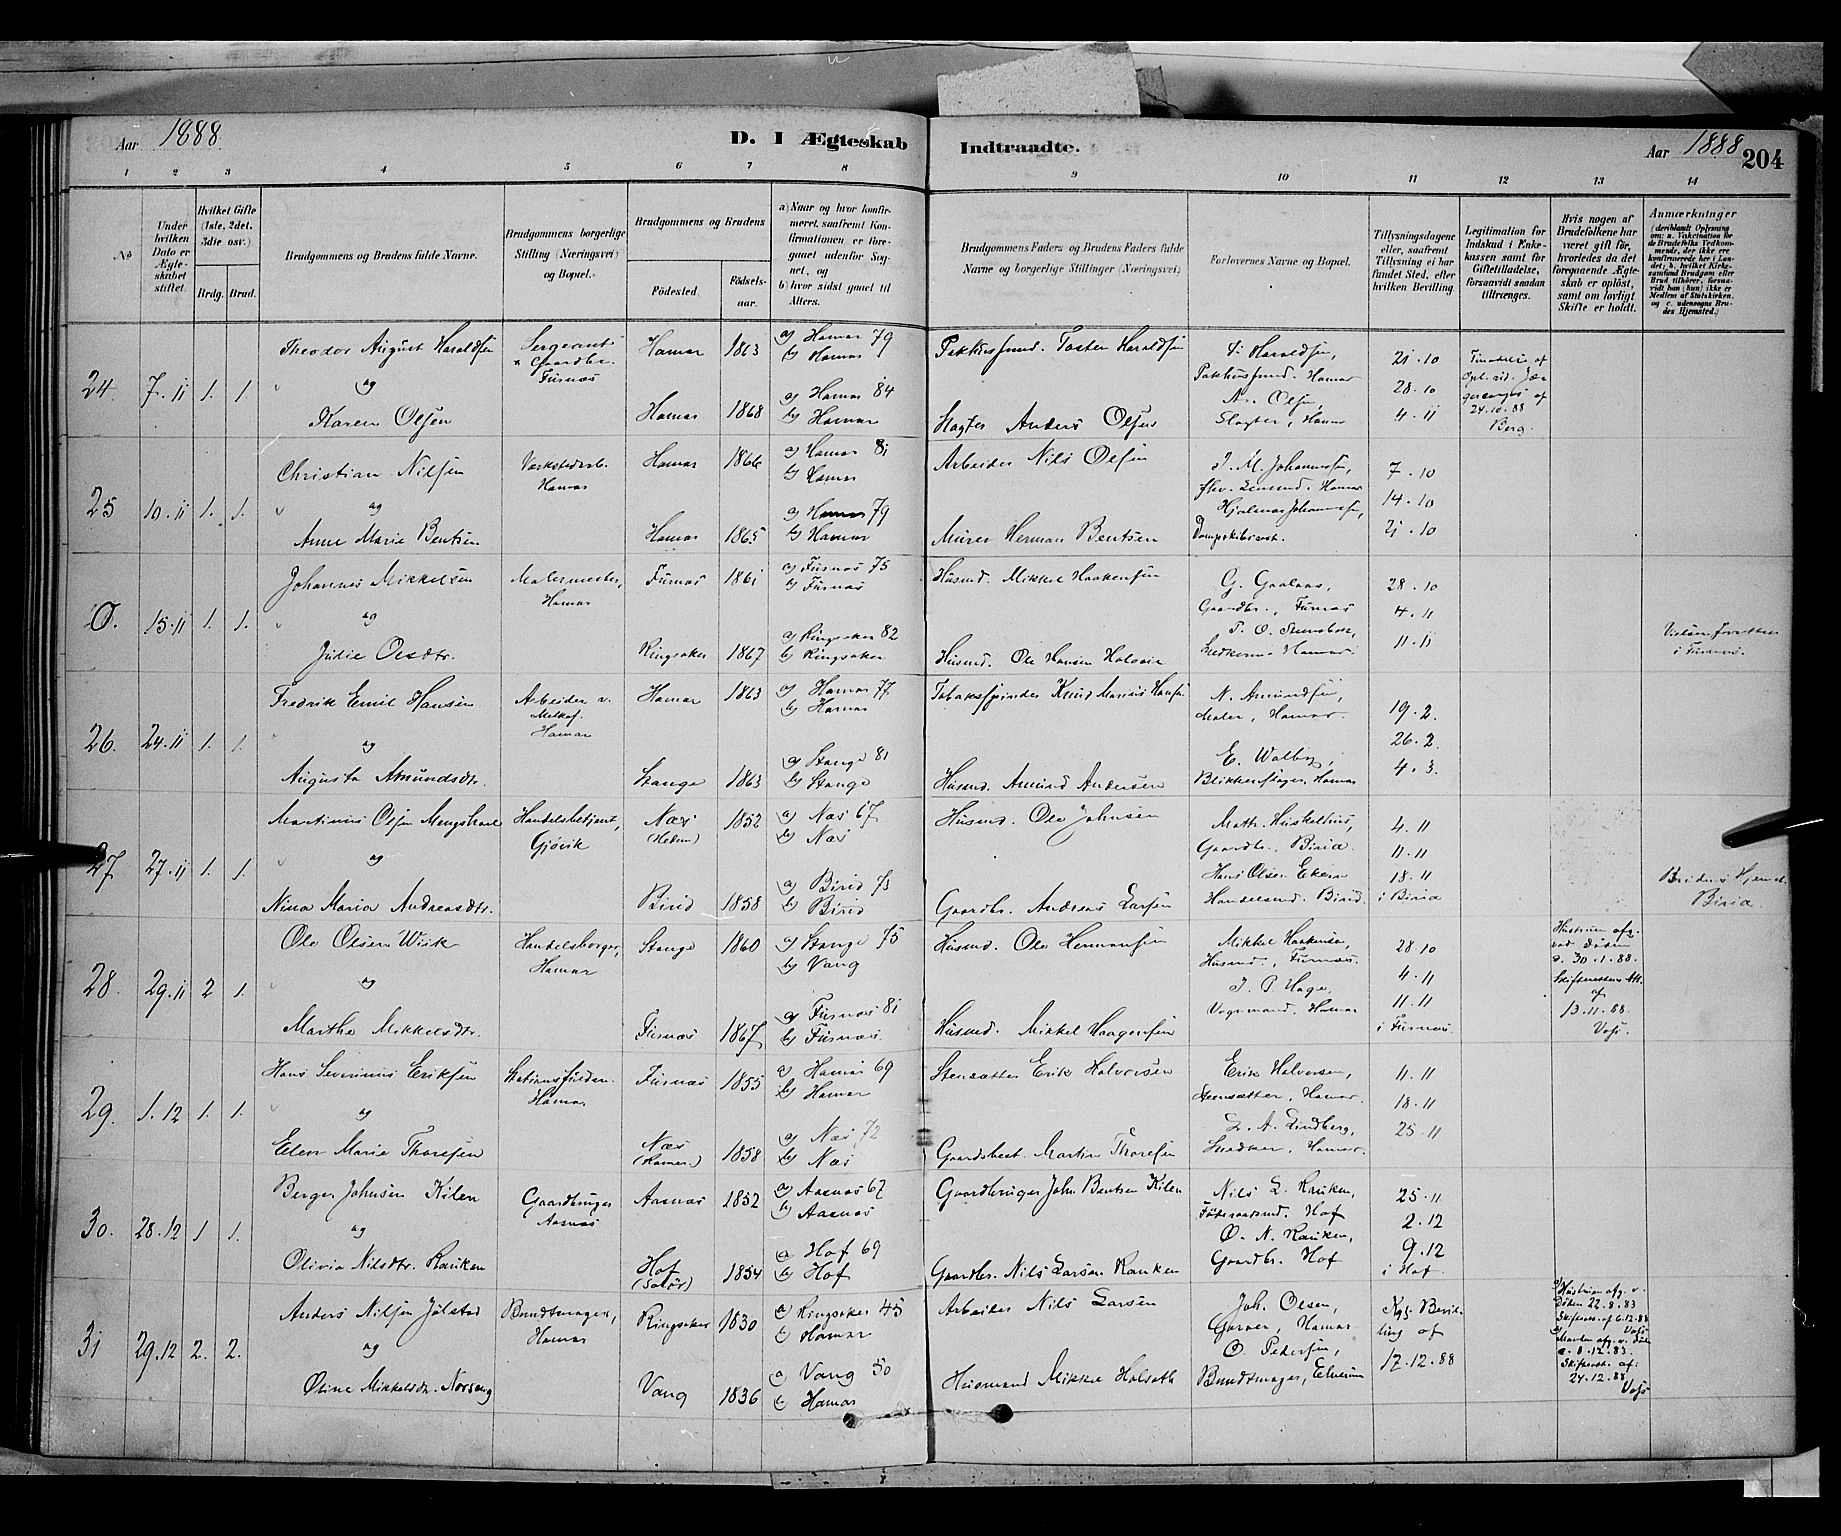 Aar 1888.
D. I Ægteskab Indtraadte.
Aar 1888 204
1 2 3 4 5 6 7 8 9 10 11 12 13 14
No
Under hvilken Dato er Ægteskabet stiftet.
Hvilket Gifte (1ste, 2det, 3die osv.)
Brdg. Brud.
Brudgommens og Brudens fulde Navne.
Brudgommens borgerlige Stilling (Næringsvei) og Bopæl.
Brudgommens og Brudens
Fødested. Fødselsaar.
a) Naar og hvor konfirmeret, saafremt Konfirmationen er foregaaet udenfor Sognet, og
b) hvor sidst gaaet til Alters.
Brudgommens Faders og Brudens Faders fulde Navne og borgerlige Stillinger (Næringsvei)
Forlovernes Navne og Bopæl.
Tillysningsdagene eller, saafremt Tillysning ei har fundet Sted, efter hvilken Bevilling.
Legitimation for Indskud i Enkekassen samt for Giftetilladelse, forsaavidt saadan tiltrænges.
Hvis nogen af Brudefolkene har været gift før, hvorledes da det foregaaende Ægteskab er opløst, samt om lovligt Skifte er holdt.
Anmærkninger (deriblandt Oplysning om: a. Vakcination for de Brudefolks Vedkommende, der ikke ere konfirmerede her i Landet; b. hvilket Kirkesamfund Brudgom eller Brud tilhører, forsaavidt han (hun) ikke er Medlem af Statskirken, og c. udensogns Brudes Hjemsted.)
24. 7.11 1. 1.
Theodor August Haraldsen
og
Karen Olsen
Sergeant
Furnæs
Hamar 1863 a) Hamar 79
b) Hamar
Hamar 1868 a) Hamar 84
b) Hamar
Pakhusmd. Haraldsen
Slagter Anders Olsen
Haraldsen,
Pakhusmd. Hamar
A. Olsen,
Slagter, Hamar
21.10
28.10
4.11
24.10.88
Berg.
25 10.11 1. 1.
Christian Nilsen
og
Anne Marie Bentsen
Værkstedarb.
Hamar
Hamar 1866 a) Hamar 81
b) Hamar
Hamar 1865 a) Hamar 79
b) Hamar
Arbeider Nils Olsen
Murer Herman Bentsen
J. M. Johannesen,
Hamar
Hjalmar Johannesen,
7.10
14.10
21.10
0. 15.11 1. 1.
Johannes Mikkelsen
og
Julie Olsdtr.
Malermester,
Hamar
Furnæs 1861 a) Furnæs 75
b) Furnæs
Ringsaker 1867 a) Ringsaker 82
b) Ringsaker
Husmd. Mikkel Haakensen
Husmd. Ole Hansen
G. Gaalaas,
Gaardbr., Furnæs
Snedker Hamar.
28.10
4.11
11.11
Vielsen forrettet
i Furnæs.
26. 24.11 1. 1.
Fredrik Emil Hansen
og
Augusta Amundsdtr.
Arbeider v.
Melkef.
Hamar
Hamar 1863 a) Hamar 77
b) Hamar
Stange 1863 a) Stange 81
b) Stange
Tobakspinder Knud Marius Hansen
Husmd. Amund Andersen
N. Amundsen,
Maler, Hamar.
E. Walby,
Blikkenslager, Hamar
19.2.
26.2.
4.3.
27 27.11 1. 1.
Martinus Olsen Mengshoel
og
Nina Maria Andreasdtr.
Handelsbetjent,
Gjøvik
Næs 1852 a) Næs 67
(Hedem) b) Næs
Birid 1858 a) Birid 73
b) Birid
Husmd. Ole Johnsen
Gaardbr. Andreas Larsen
Math. Huskelhus,
Gaardbr., Birid.
Hans Olsen Ekern
Handelsmd. Birid.
4.11
11.11
18.11
i Birid
Brudens Hjemst.
Birid.
28. 29.11 2 1.
Ole Olsen Wiik
og
Marthe Mikkelsdtr.
Handelsborger,
Hamar
Stange 1860 a) Stange 75
b) Vang
Furnæs 1867 a) Furnæs 81
b) Furnæs
Husmd. Ole Hermansen
Husmd. Mikkel Haagensen
Mikkel Haakensen,
Husmd., Furnæs.
J. P. Hage,
Vognmand, Hamar
28.10
4.11
11.11
i Furnæs.
Hustruen afg.
ved Døden
d. 30.1.88.
Skifterettens Att.
af
13.11.88.
Vogt.
29. 1.12 1. 1.
Hans Severinus Eriksen
og
Elen Marie Thoresen
Hamar
Furnæs 1855 a) Hamar 69
b) Hamar
Næs 1858 a) Næs 72
b) Næs
Stensætter Erik Halvorsen
Gaardsbest. Martin Thoresen
Erik Halvorsen,
Stensætter, Hamar.
L. A. Lindberg,
Snedker, Hamar.
11.11
18.11
25.11
30. 28.12 1 1.
Berger Johnsen Kilen
og
Olivia Nilsdtr. Rauken
Gaardbruger
Aasnæs
Aasnæs 1852 a) Aasnæs 67
b) Aasnæs
Hof 1854 a) Hof 69
(Solør) b) Hof
Gaardbruger John Bentsen Kilen
Gaardbr. Nils Larsen Rauken
Nils L. Rauken,
Føderaadsmd. Hof
O. N. Rauken,
Gaardbr. Hof
25.11
2.12
9.12
i Hof.
31 29.12 2. 2.
Anders Nilsen Jølstad
og
Oline Mikkelsdr. Norseng
Bundtmager,
Hamar
Ringsaker 1830 a) Ringsaker 45
b) Hamar
Vang 1836 a) Vang 50
b) Hamar
Arbeider Nils Larsen
Husmand Mikkel Holsæth
Joh. Olsen,
Garver, Hamar
O. Pedersen,
Bundtmager, Elverum
Kgl. Bevilling af
17.12.88
a) Hustruen afg. v.
Døden 22.8.83
Skifteatt. af 6.12.88
Vogt
Manden afg. v. Døden
d. 8.12.83.
Skifteatt. af:
24.12.88
Vogt